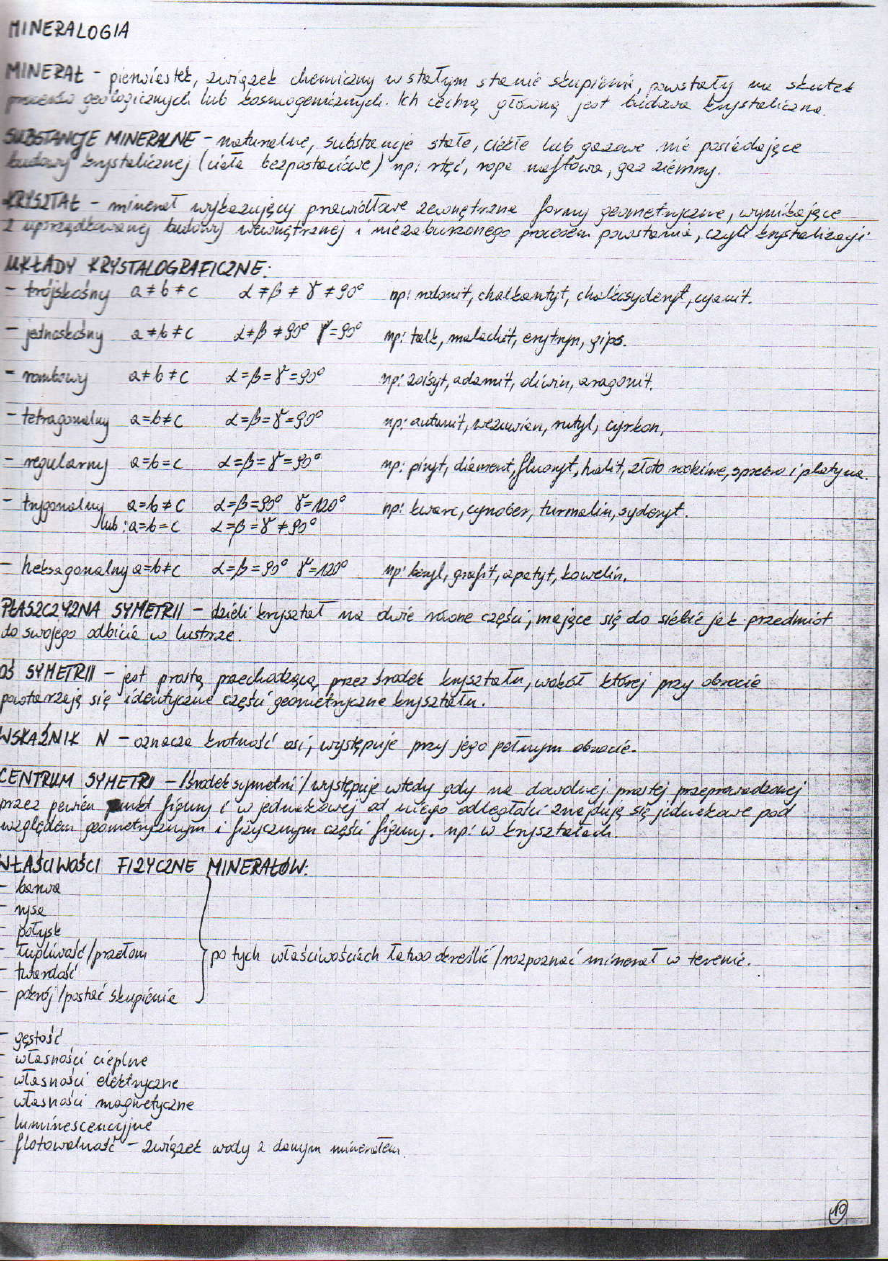 MINERALOGIA
MINERAŁ - pierwiastek, związek chemiczny w stałym stanie skupienia, powstały na skutek
procesów geologicznych lub kosmogenicznych. Ich cechą główną jest budowa krystaliczna.
SUBSTANCJE MINERALNE - naturalne, substancje stałe, ciekłe lub gazowe nie posiadające
budowy krystalicznej (ciała bezpostaciowe) np: rtęć, ropa naftowa, gaz ziemny.
KRYSZTAŁ - minerał wykazujący prawidłowe zewnętrzne formy geometryczne, wynikające
z uporządkowanej budowy wewnętrznej i niezaburzonego procesem powstania, czyli krystalizacji
UKŁADY KRYSTALOGRAFICZNE:
- trójskośny a≠b≠c α≠β≠γ≠90° np: rodonit, chalkantyt, chalkosyderyt, cyanit.
- jednoskośny a≠b≠c α≠β≠90° γ=90° np: talk, malachit, erytryn, gips.
- rombowy a≠b≠c α=β=γ=90° np: zoisyt, adamit, oliwin, aragonit.
- tetragonalny a=b≠c α=β=γ=90° np: autunit, wezuwian, rutyl, cyrkon,
- regularny a=b=c α=β=γ=90° np: piryt, diament, fluoryt, halit, złoto rodzime, srebro i platyna.
- trygonalny a=b≠c α=β=90° γ=120° np: kwarc, cynober, turmalin, syderyt.
lub: a=b=c α=β=γ≠90°
- heksagonalny a=b≠c α=β=90° γ=120° np: beryl, grafit, apatyt, kowelin.
PŁASZCZYZNA SYMETRII - dzieli kryształ na dwie równe części; mające się do siebie jak przedmiot
do swojego odbicia w lustrze.
OŚ SYMETRII - jest prostą przechodzącą przez środek kryształu, wokół której przy obrocie
powtarzają się identyczne części geometryczne kryształu.
WSKAŹNIK N - oznacza krotność osi; występuje przy jego pełnym obrocie.
CENTRUM SYMETRI - /środek symetrii/ występuje wtedy gdy na dowolnej prostej przeprowadzonej
przez pewien punkt figury i w jednakowej od niego odległości znajdują się jednakowe pod
względem geometrycznym i fizycznym części figury. np: w kryształach
WŁAŚCIWOŚCI FIZYCZNE MINERAŁÓW:
- barwa
- rysa
- połysk
- łupliwość/przełam po tych właściwościach łatwo określić/rozpoznać minerał w terenie.
- twardość
- pokrój/postać skupienia
- gęstość
- własności cieplne
- własności elektryczne
- własności magnetyczne
- luminescencyjne
- flotowalność - związek wody z danym minerałem.
19